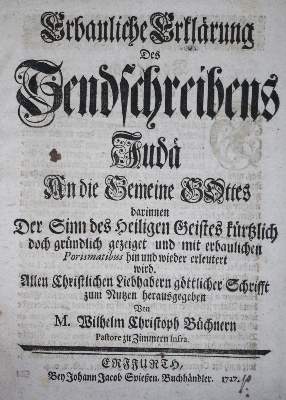 Erbauliche Erklärung
Des
Sendschreibens
Judä
An die Gemeine GOttes
darinnen
Der Sinn des Heiligen Geistes kürtzlich
doch gründlich gezeiget und mit erbaulichen
Porismatibus hin und wieder erleutert
wird.
Allen Christlichen Liebhabern göttlicher Schrifft
zum Nutzen herausgegeben
Von
M. Wilhelm Christoph Büchnern
Pastore zu Zimmern infra.
ERFFURTH,
Bey Johann Jacob Spießen, Buchhändler. 1727.